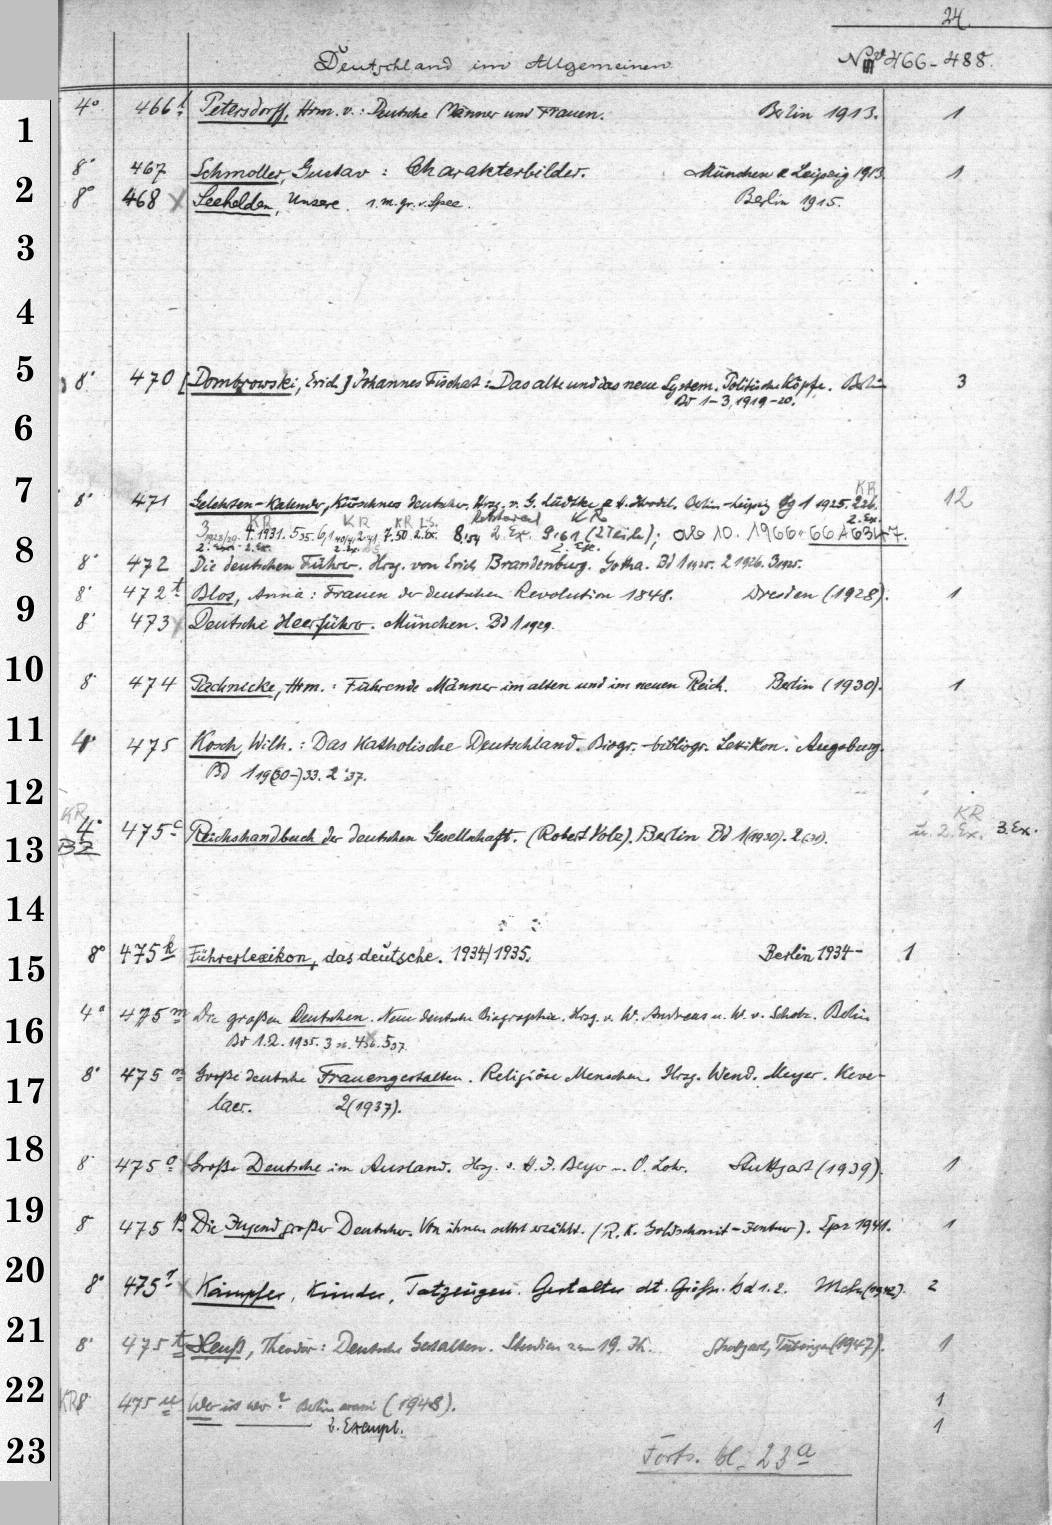 24.
Deutschland im Allgemeinen No 466-488.
1 4° 466f Petersdorff, Hrm. v.: Deutsche Männer und Frauen. Berlin 1913. 1
2 8° 467 Schmoller, Gustav: Charakterbilder. München & Leipzig 1913. 1
8° 468 Seehelden, Unsere. s. m. gr. v. Spee. Berlin 1915.
3
4
5 8° 470 [Dombrowski, Erich] Johannes Fischart: Das alte und das neue System. Politische Köpfe. Berlin 3
Bd 1-3, 1919-20.
6
KR
7 8° 471 Gelehrten-Kalender, Kürschners deutscher. Hrsg. v. G. Lüdtke & Berlin-Leipzig Jg 1 1925. 2 26. 12
2. Ex.
KR KR KR LS. KR
3 1928/29. 4. 1931. 5 35. 6,1 40/41 2 41 7. 50 2. Ex. 8,54 2. Ex. 9. 61 (2 Teile); ab 10. 1966: 66 A 6347.
2. Ex. 2. Ex. 2. Ex.
8 8° 472 Die deutschen Führer. Hrsg. von Erich Brandenburg. Gotha. Bd 1 1925. 2 1926. 3 1925.
9 8° 472t Blos, Anna: Frauen der deutschen Revolution 1848. Dresden (1928). 1
8° 473 Deutsche Heerführer. München. Bd 1 1929.
10 8° 474 Pachnicke, Hrm.: Führende Männer im alten und im neuen Reich. Berlin (1930). 1
11 4° 475 Kosch, Wilh.: Das Katholische Deutschland. Biogr.-bibliogr. Lexikon. Augsburg.
Bd 1 19(30-)33. 2 '37.
12
KR KR
13 4° 475c Reichshandbuch der deutschen Gesellschaft. (Robert Volz). Berlin Bd 1(1930). 2(31). u. 2. Ex. 3. Ex.
BZ
14
15 8° 475k Führerlexikon, das deutsche. 1934/1935. Berlin 1934- 1
16 4° 475m Die großen Deutschen. Neue deutsche Biographie. Hrsg. v. W. Andreas u. W. v. Scholz. Berlin
Bd 1.2. 1935. 3 u. 4 36. 5 37.
17 8° 475n Große deutsche Frauengestalten. Religiöse Menschen. Hrsg. Wend. Meyer. Keve-
laer. 2(1937).
18 8° 475o Große Deutsche im Ausland. Hrsg. v. H. J. Beyer u. O. Lohr. Stuttgart (1939). 1
19 8° 475p Die Jugend großer Deutscher. Von ihnen selbst erzählt. (R. K. Goldschmit-Jentner). Lpz 1941. 1
20 8° 475r Kämpfer, Künder, Tatzeugen. Gestalter dt. Größe. Bd 1. 2. Mchn (1942). 2
21 8° 475t Heuß, Theodor: Deutsche Gestalten. Studien zum 19. Jh. Stuttgart, Tübingen (1947). 1
22 KR 8° 475u Wer ist wer? Berlin (1948). 1
2. Exempl. 1
23
Forts. bl. 23a